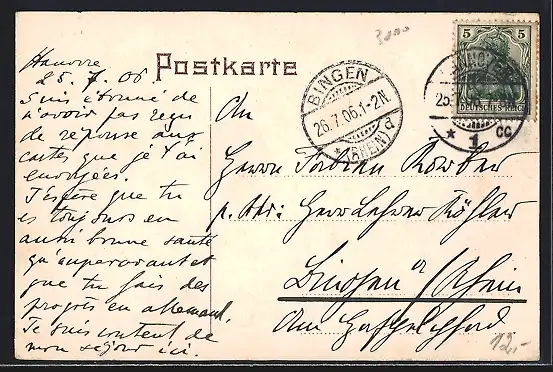 Hanovre
25. 7. 06
Postkarte
3000
5 5
DEUTSCHES REICH
BINGEN
26.7.06.1-2N
(RHEIN) d
25.
* 1 CC
Suis étonné de
n'avoir pas reçu
de réponse aux
cartes que je t'ai
envoyées.
J'espère que tu
es toujours en
aussi bonne santé
qu'auparavant et
que tu fais des
progrès en allemand.
Je suis content de
mon séjour ici.
An
Herrn Fabian
p. Adr: Herr Lehrer Köhler
Bingen a/Rhein
Am
12,-